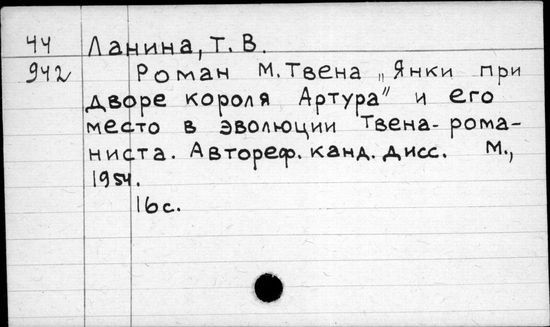 44 Ланина, Т. В.
942 Роман М. Твена „Янки при
дворе короля Артура” и его
место в эволюции Твена-рома-
ниста. Автореф. канд. дисс. М.,
1954.
16с.